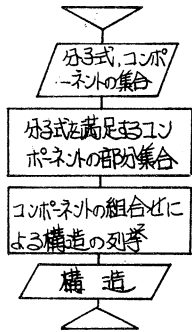 分子式,コンポ
ーネントの集合
分子式を満足するコン
ポーネントの部分集合
コンポーネントの組合せに
よる構造の列挙
構造